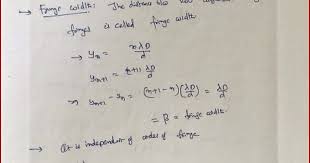 → Fringe width: The distance b/w two
fringes is called fringe width
→ yₙ = nλD/d
yₙ₊₁ = (n+1) λD/d
→ yₙ₊₁ - yₙ = (n+1-n) (λD/d) = λD/d
= β = fringe width
→ It is independent of order of
fringe